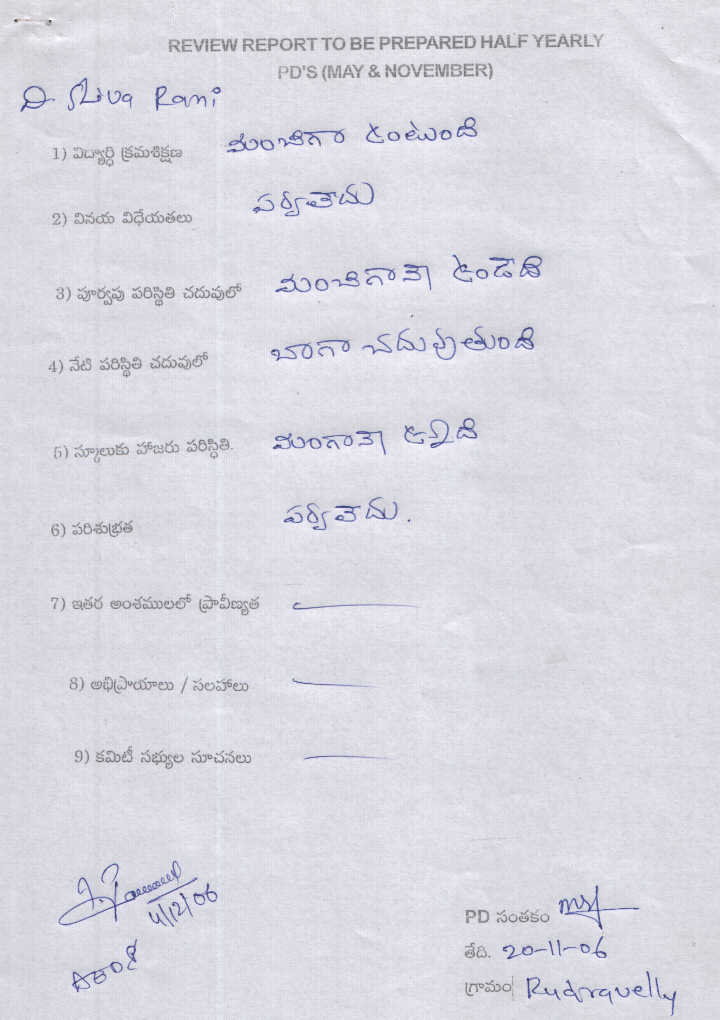 REVIEW REPORT TO BE PREPARED HALF YEARLY
PD'S (MAY & NOVEMBER)
D. Siva Rani
1) విద్యార్థి క్రమశిక్షణ మంచిగా ఉంటుంది
2) వినయ విధేయతలు పర్వలేదు
3) పూర్వపు పరిస్థితి చదువులో మంచిగానే ఉండెది
4) నేటి పరిస్థితి చదువులో బాగా చదువుతుంది
5) స్కూలుకు హాజరు పరిస్థితి. ఉన్నది
6) పరిశుభ్రత పర్వలేదు.
7) ఇతర అంశములలో ప్రావీణ్యత
8) అభిప్రాయాలు / సలహాలు
9) కమిటీ సభ్యుల సూచనలు
4/12/06
PD సంతకం
తేది. 20-11-06
గ్రామం Rudravelly